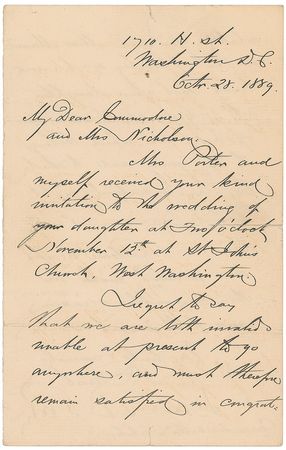 1710. H. st.
Washington D.C.
Octr. 28. 1889.
My Dear Commodore
and Mrs Nicholson.
Mrs Porter and
myself received your kind
invitation to the wedding of
your daughter at Two o'clock
November 12th at St John's
Church, West Washington.
I regret to say
that we are both invalids
unable at present to go
anywhere, and must therefore
remain satisfied in congrat-